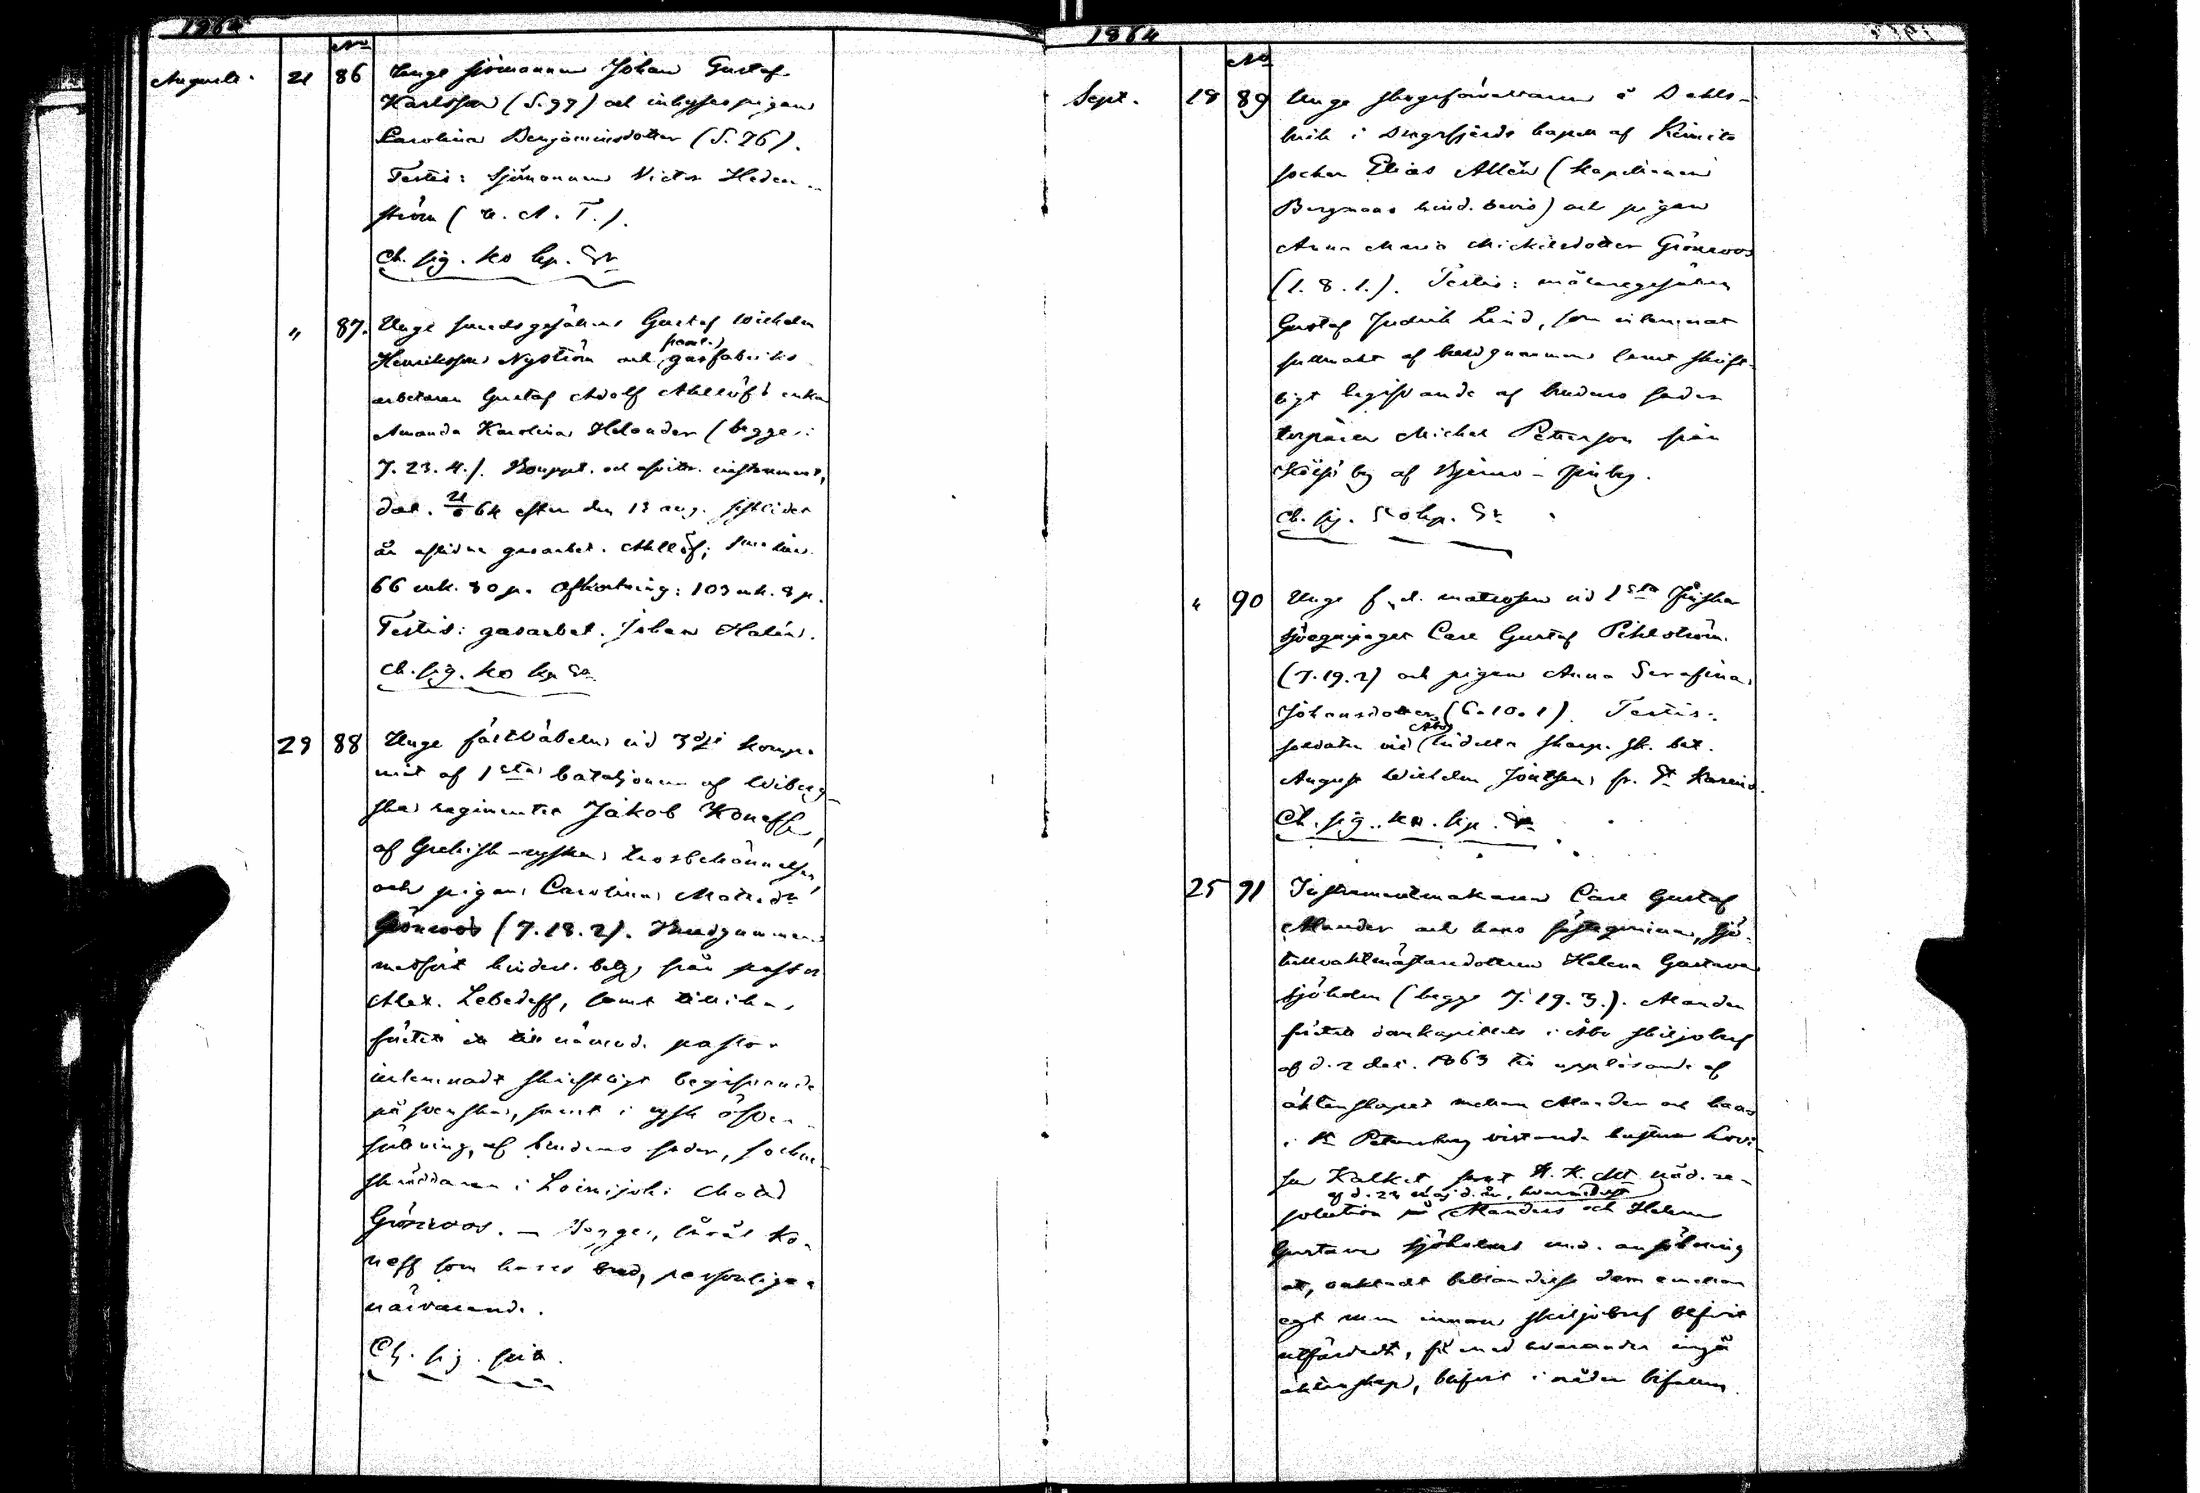 1864
No
Augusti. 21 86 Unge sjömannen Johan Gustaf
Karlsson (S. 99) och inhysespigan
Carolina Benjaminsdotter (S. 76).
Testis: Sjömannen Victor Heden-
ström (u. A. T.).
Ch. sig. 40 kp. Sr
" 87. Unge smedsgesällen Gustaf Wilhelm
Henriksson Nyström och gasfabriks-
arbetaren Gustaf Adolf Ahllöfs enka
Amanda Karolina Helander (begge:
7. 23. 4.). Bouppt. och afvitr. instrument,
dat. 64 efter den 13 aug. sistlidet
år aflidne gasarbet. Ahllöf;
66 mk. 80 p. Afkortning: 103 mk. 8 p.
Testis: gasarbet. Johan Halin.
Ch. sig. 40 kp. Sr
29 88 Unge fältväbeln vid 3dje kompa-
niet af 1sta bataljonen af Wiborg-
ska regimentet Jakob Koneff,
af Grekisk-ryska trosbekännelsen,
och pigan Carolina Matsdr
Grönroos (7. 18. 2). Brudgummen
medfört hinderl. betyg från pastor
Alex. Lebedeff, samt
nämnde pastor
inlemnadt skriftligt begifvande
på svenska, samt i rysk öfver-
sättning, af brudens fader, socken-
skräddaren i Loimijoki Mats
Grönroos. — Begge, såväl Ko-
neff som hans brud, personligen
närvarande.
Ch. sig. fria.
1864
No
Sept. 18 89 Unge skogsförvaltaren å Dahls-
bruk i Dragsfjerds kapell af Kimito
socken Elias Allén (Kapellanen
Bergmans hind. bevis) och pigan
Anna Maria Mickelsdotter Grönroos
(1. 8. 1.). Testis: målaregesällen
Gustaf Fredrik Lind, som inlemnat
fullmakt af brudgummen samt skrift-
ligt begifvande af brudens fader
torparen Michel Petterson från
by af Bjerno - Finby.
Ch. sig. 50 kp. Sr
" 90 Unge f. d. matrosen vid 1sta Finska
sjöequipaget Carl Gustaf Pihlström
(7. 19. 2) och pigan Anna Serafina
Johansdotter (6. 10. 1). Testis:
Åbo
soldaten vid indelta skarp. sk. bat.
August Wilhelm fr. St Karins.
Ch. sig. 40. kp. Sr
25 91 Instrumentmakaren Carl Gustaf
Mander och hans fästeqvinna,
tullvaktmästaredottren Helena Gustava
Sjöholm (begge 7. 19. 3.). Mander
företett domkapitlets i Åbo skiljobref
af d. 2 dec. 1863 till upplösande af
äktenskapet mellan Mander och hans
i St Petersburg vistande hustru Lovi-
sa Kalket samt H. K. Mt nåd. re-
af d. 23 maj d. år, hvarmedelst
solution på Manders och Helena
Gustava Sjöholms und. ansökning
att, oaktadt beblandelse dem emellan
egt rum innan skiljobref blifvit
utfärdadt, få med hvarandra ingå
äktenskap, blifvit i nåder bifallen.